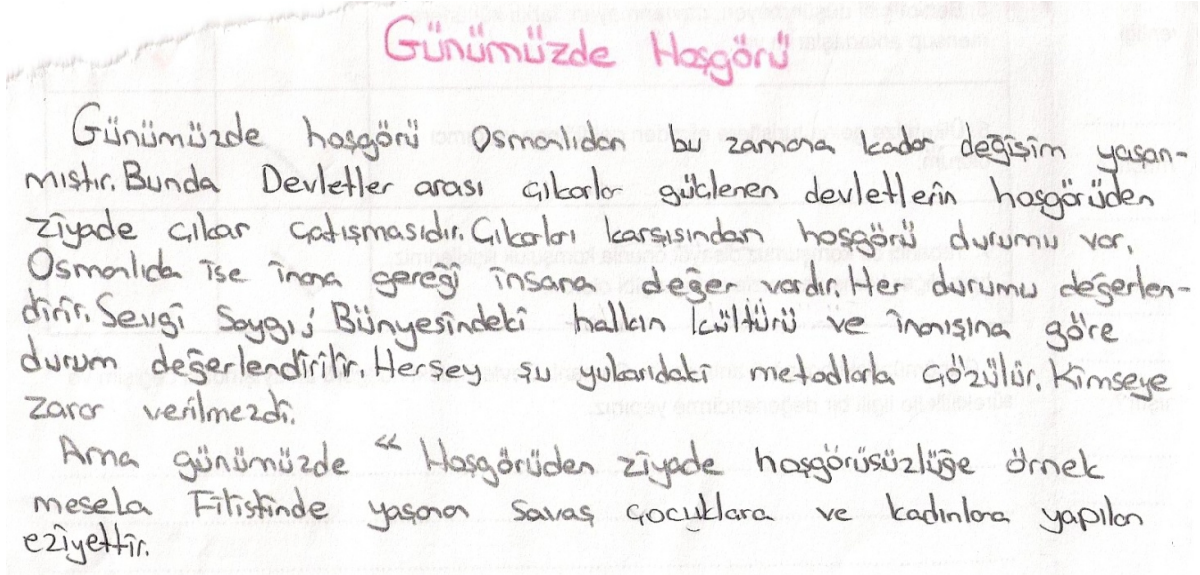 Günümüzde Hoşgörü
Günümüzde hoşgörü Osmanlıdan bu zamana kadar değişim yaşan-
mıştır. Bunda Devletler arası çıkarlar güçlenen devletlerin hoşgörüden
ziyade çıkar çatışmasıdır. Çıkarları karşısından hoşgörü durumu var.
Osmanlıda ise inanç gereği insana değer vardır. Her durumu değerlen-
dirir. Sevgi Saygı; Bünyesindeki halkın kültürü ve inanışına göre
durum değerlendirilir. Herşey şu yukarıdaki metodlarla çözülür. Kimseye
zarar verilmezdi.
Ama günümüzde “ Hoşgörüden ziyade hoşgörüsüzlüğe örnek
mesela Filistinde yaşana savaş çocuklara ve kadınlara yapılan
eziyettir.